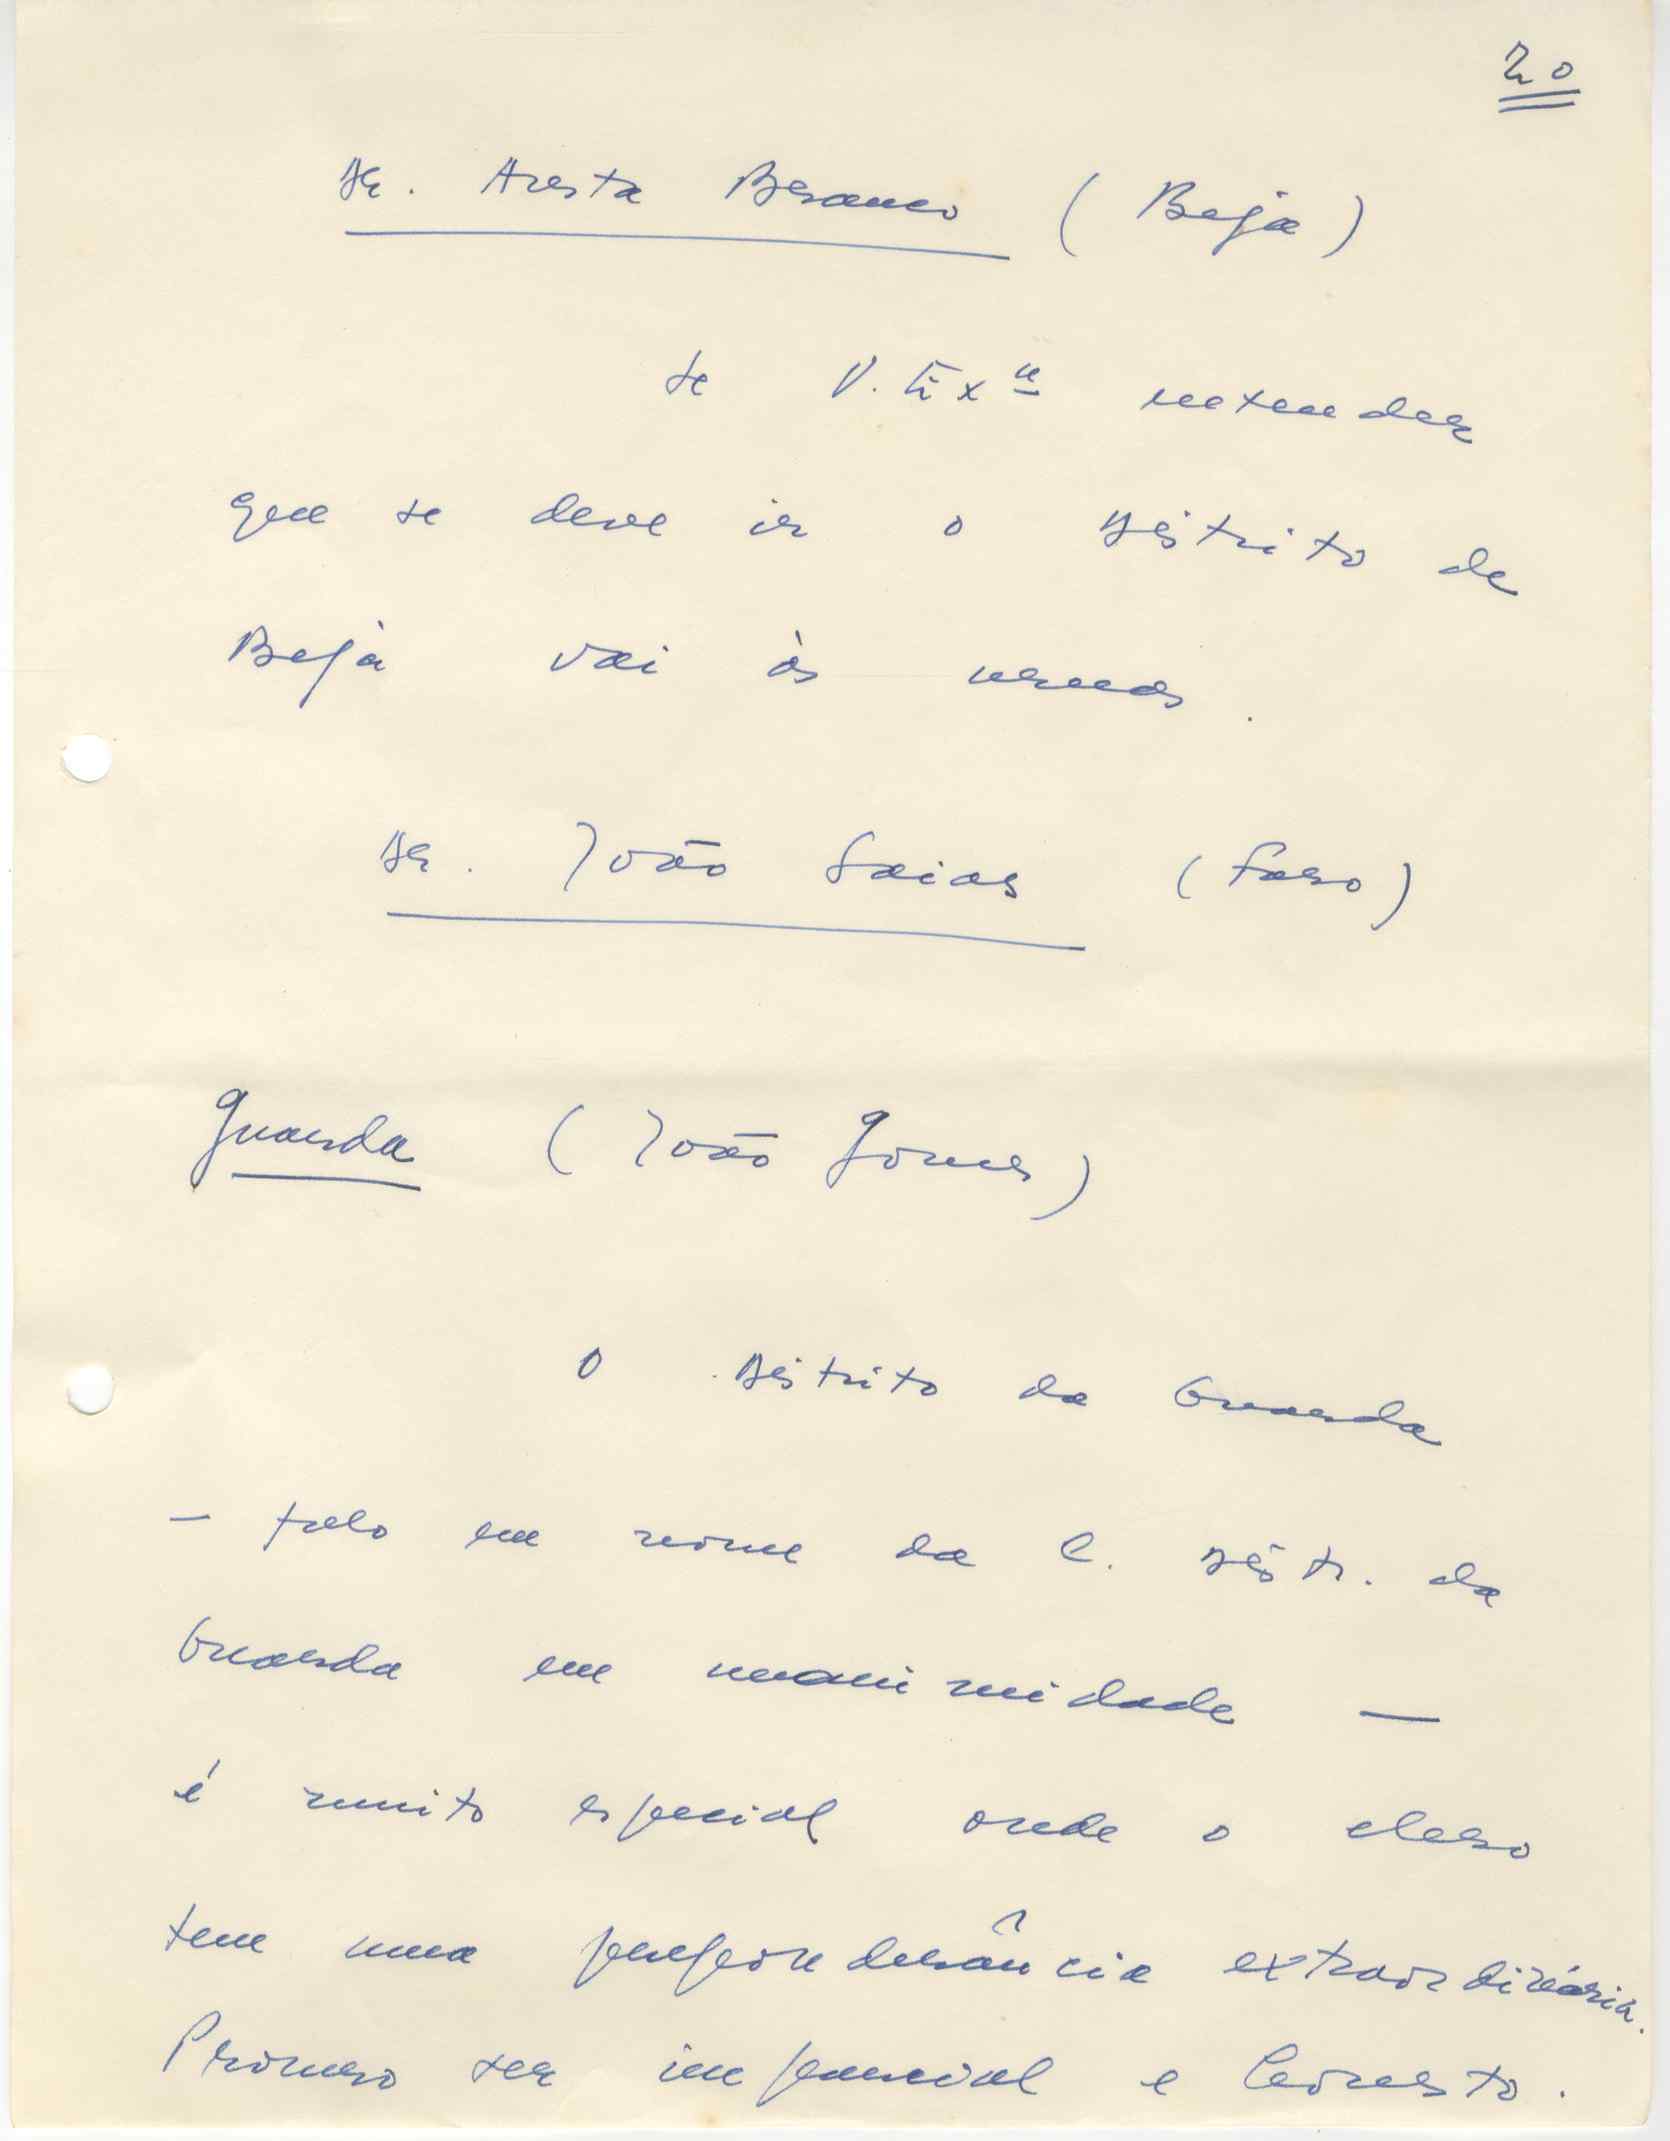 20
Dr. Aresta Branco (Beja)
Se V. Ex.ª entender
que se deve ir o Distrito de
Beja vai às urnas.
Dr. João Saias (Faro)
Guarda (João Gomes)
O Distrito da Guarda
— falo em nome da C. Distr. da
Guarda em unanimidade —
é muito especial onde o clero
tem uma preponderância extraordinária.
Procuro ser imparcial e honesto.